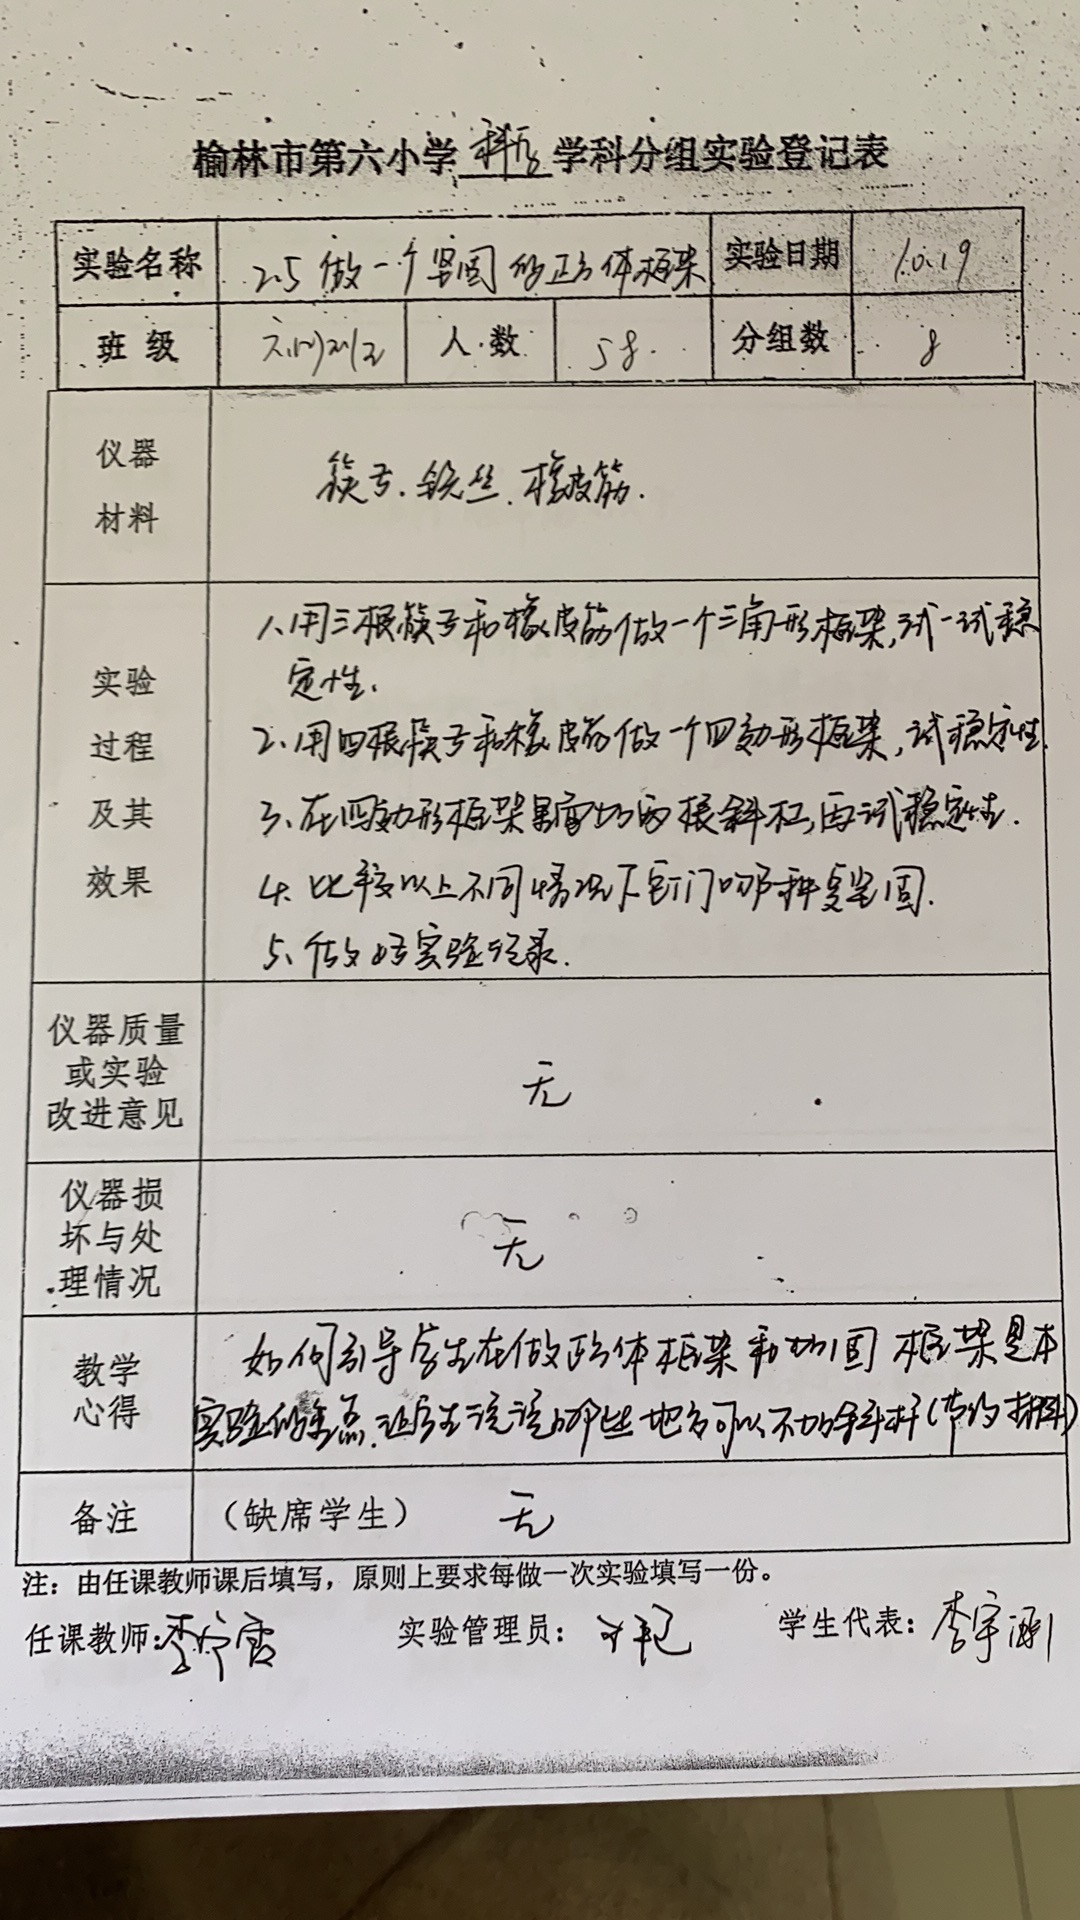 榆林市第六小学 科学 学科分组实验登记表
实验名称 2.5 做一个坚固的正方体框架 实验日期 10.19
班级 人数 58. 分组数 8
仪器
材料
筷子、铁丝、橡皮筋.
实验
过程
及其
效果
1、用三根筷子和橡皮筋做一个三角形框架,试一试稳
定性.
2、用四根筷子和橡皮筋做一个四边形框架,试稳定性.
3、在四边形框架里面加两根斜杠,再试稳定性.
4、比较以上不同情况下它们哪种更坚固.
5、做好实验记录.
仪器质量
或实验
改进意见
无
仪器损
坏与处
理情况
无
教学
心得
如何引导学生在做正方体框架和加固框架是本
实验的重点,让学生说说哪些地方可以不加斜杆(节约材料)
备注 (缺席学生) 无
注:由任课教师课后填写,原则上要求每做一次实验填写一份。
任课教师: 实验管理员: 学生代表:李宇涵